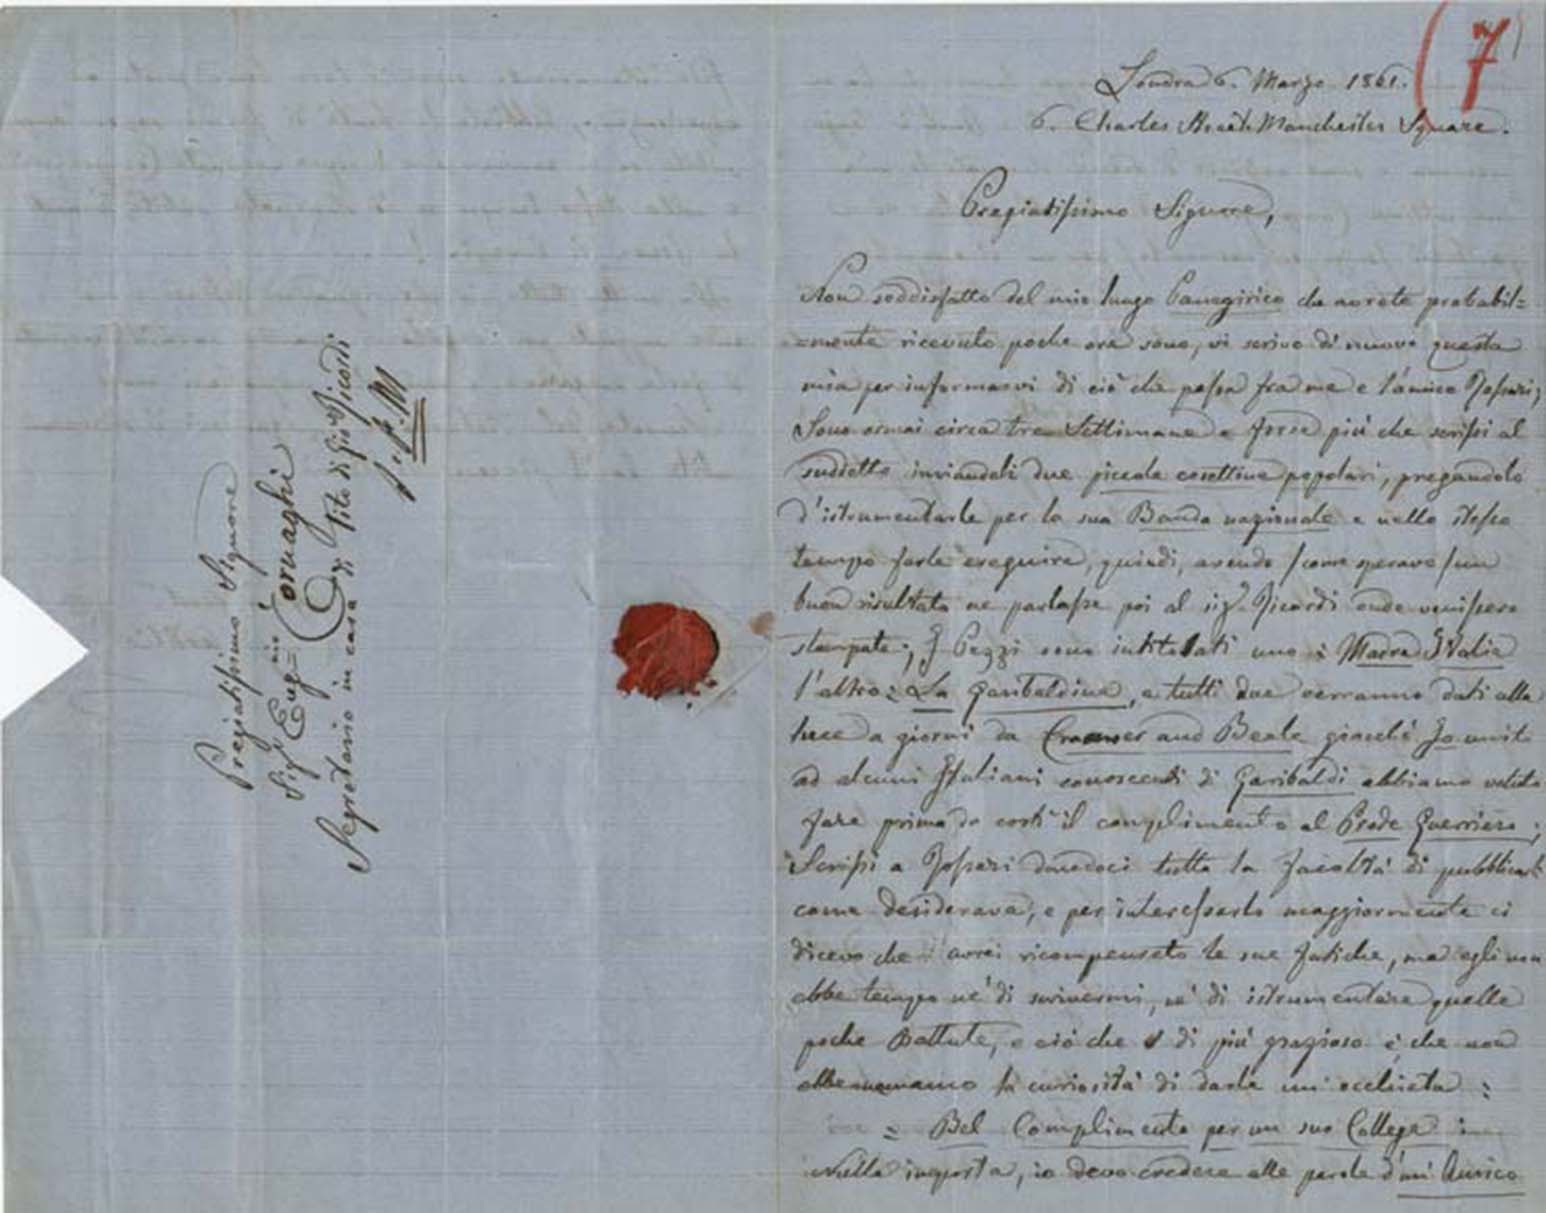 (7)
Londra 6. Marzo 1861.
6. Charles Street Manchester Square.
Pregiatissimo Signore,
Non soddisfatto del mio lungo Panegirico da avrete probabil=
=mente ricevuto poche ore sono, vi scrivo di nuovo questa
mia per informarvi di ciò che passa fra me e l'amico Rossari;
Sono ormai circa tre Settimane e forse più che scrissi al
suddetto inviandoli due piccole cosettine popolari, pregandolo
d'istrumentarle per la sua Banda nazionale e nello stesso
tempo farle eseguire, quindi, avendo /come speravo/ un
buon risultato ne parlasse poi al sigr. Ricordi onde venissero
stampate; I Pezzi sono intitolati uno: Madre Italia
l'altro: La Garibaldina, e tutti due verranno dati alla
luce a giorni da Cramer and Beale giacchè Io unito
ad alcuni Italiani conoscenti di Garibaldi abbiamo voluto
fare prima da costì il complimento al Prode Guerriero;
Scrissi a Rossari dandoci tutta la facoltà di pubblicarli
come desiderava, e per interessarlo maggiormente ci
dicevo che avrei ricompensato le sue fatiche, ma egli non
ebbe tempo nè di scrivermi, nè di istrumentare quelle
poche Battute, e ciò che di più grazioso è che non
ebbe nemmanco la curiosità di darle un'occhiata:
= Bel Complimento per un suo Collega
Nulla importa, io devo credere alle parole d'un Amico
Pregiatissimo Signore
Sigr. Eugnio Tornaghi
Segretario in casa di Tito di Gio Ricordi
S. P. M